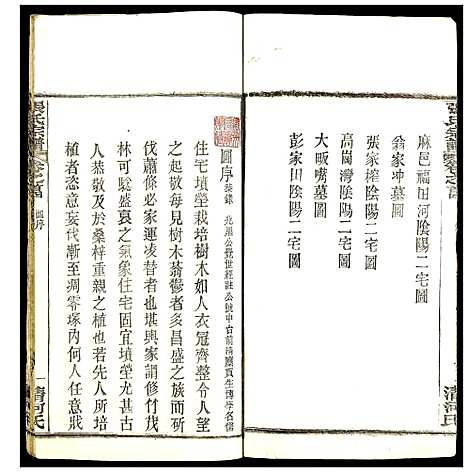 張氏宗譜
卷之首
麻邑福田河陰陽二宅圖
翁家冲墓圖
張家榨陰陽二宅圖
高崗灣陰陽二宅圖
大畈嘴墓圖
彭家田陰陽二宅圖
清河氏
圖序
住宅墳塋栽培樹木如人衣冠齊整令人望
之起敬每見樹木蓊鬱者多昌盛之族而斫
伐蕭條必運凌替者也堪輿家謂修竹茂
林可驗盛衰之氣象住宅固宜墳塋尤甚古
人恭敬及於桑梓重親之植也若先人所培
植者恣意妄伐漸至凋零塚內何人任意戕
張氏宗譜
卷之首
圖序
清河氏